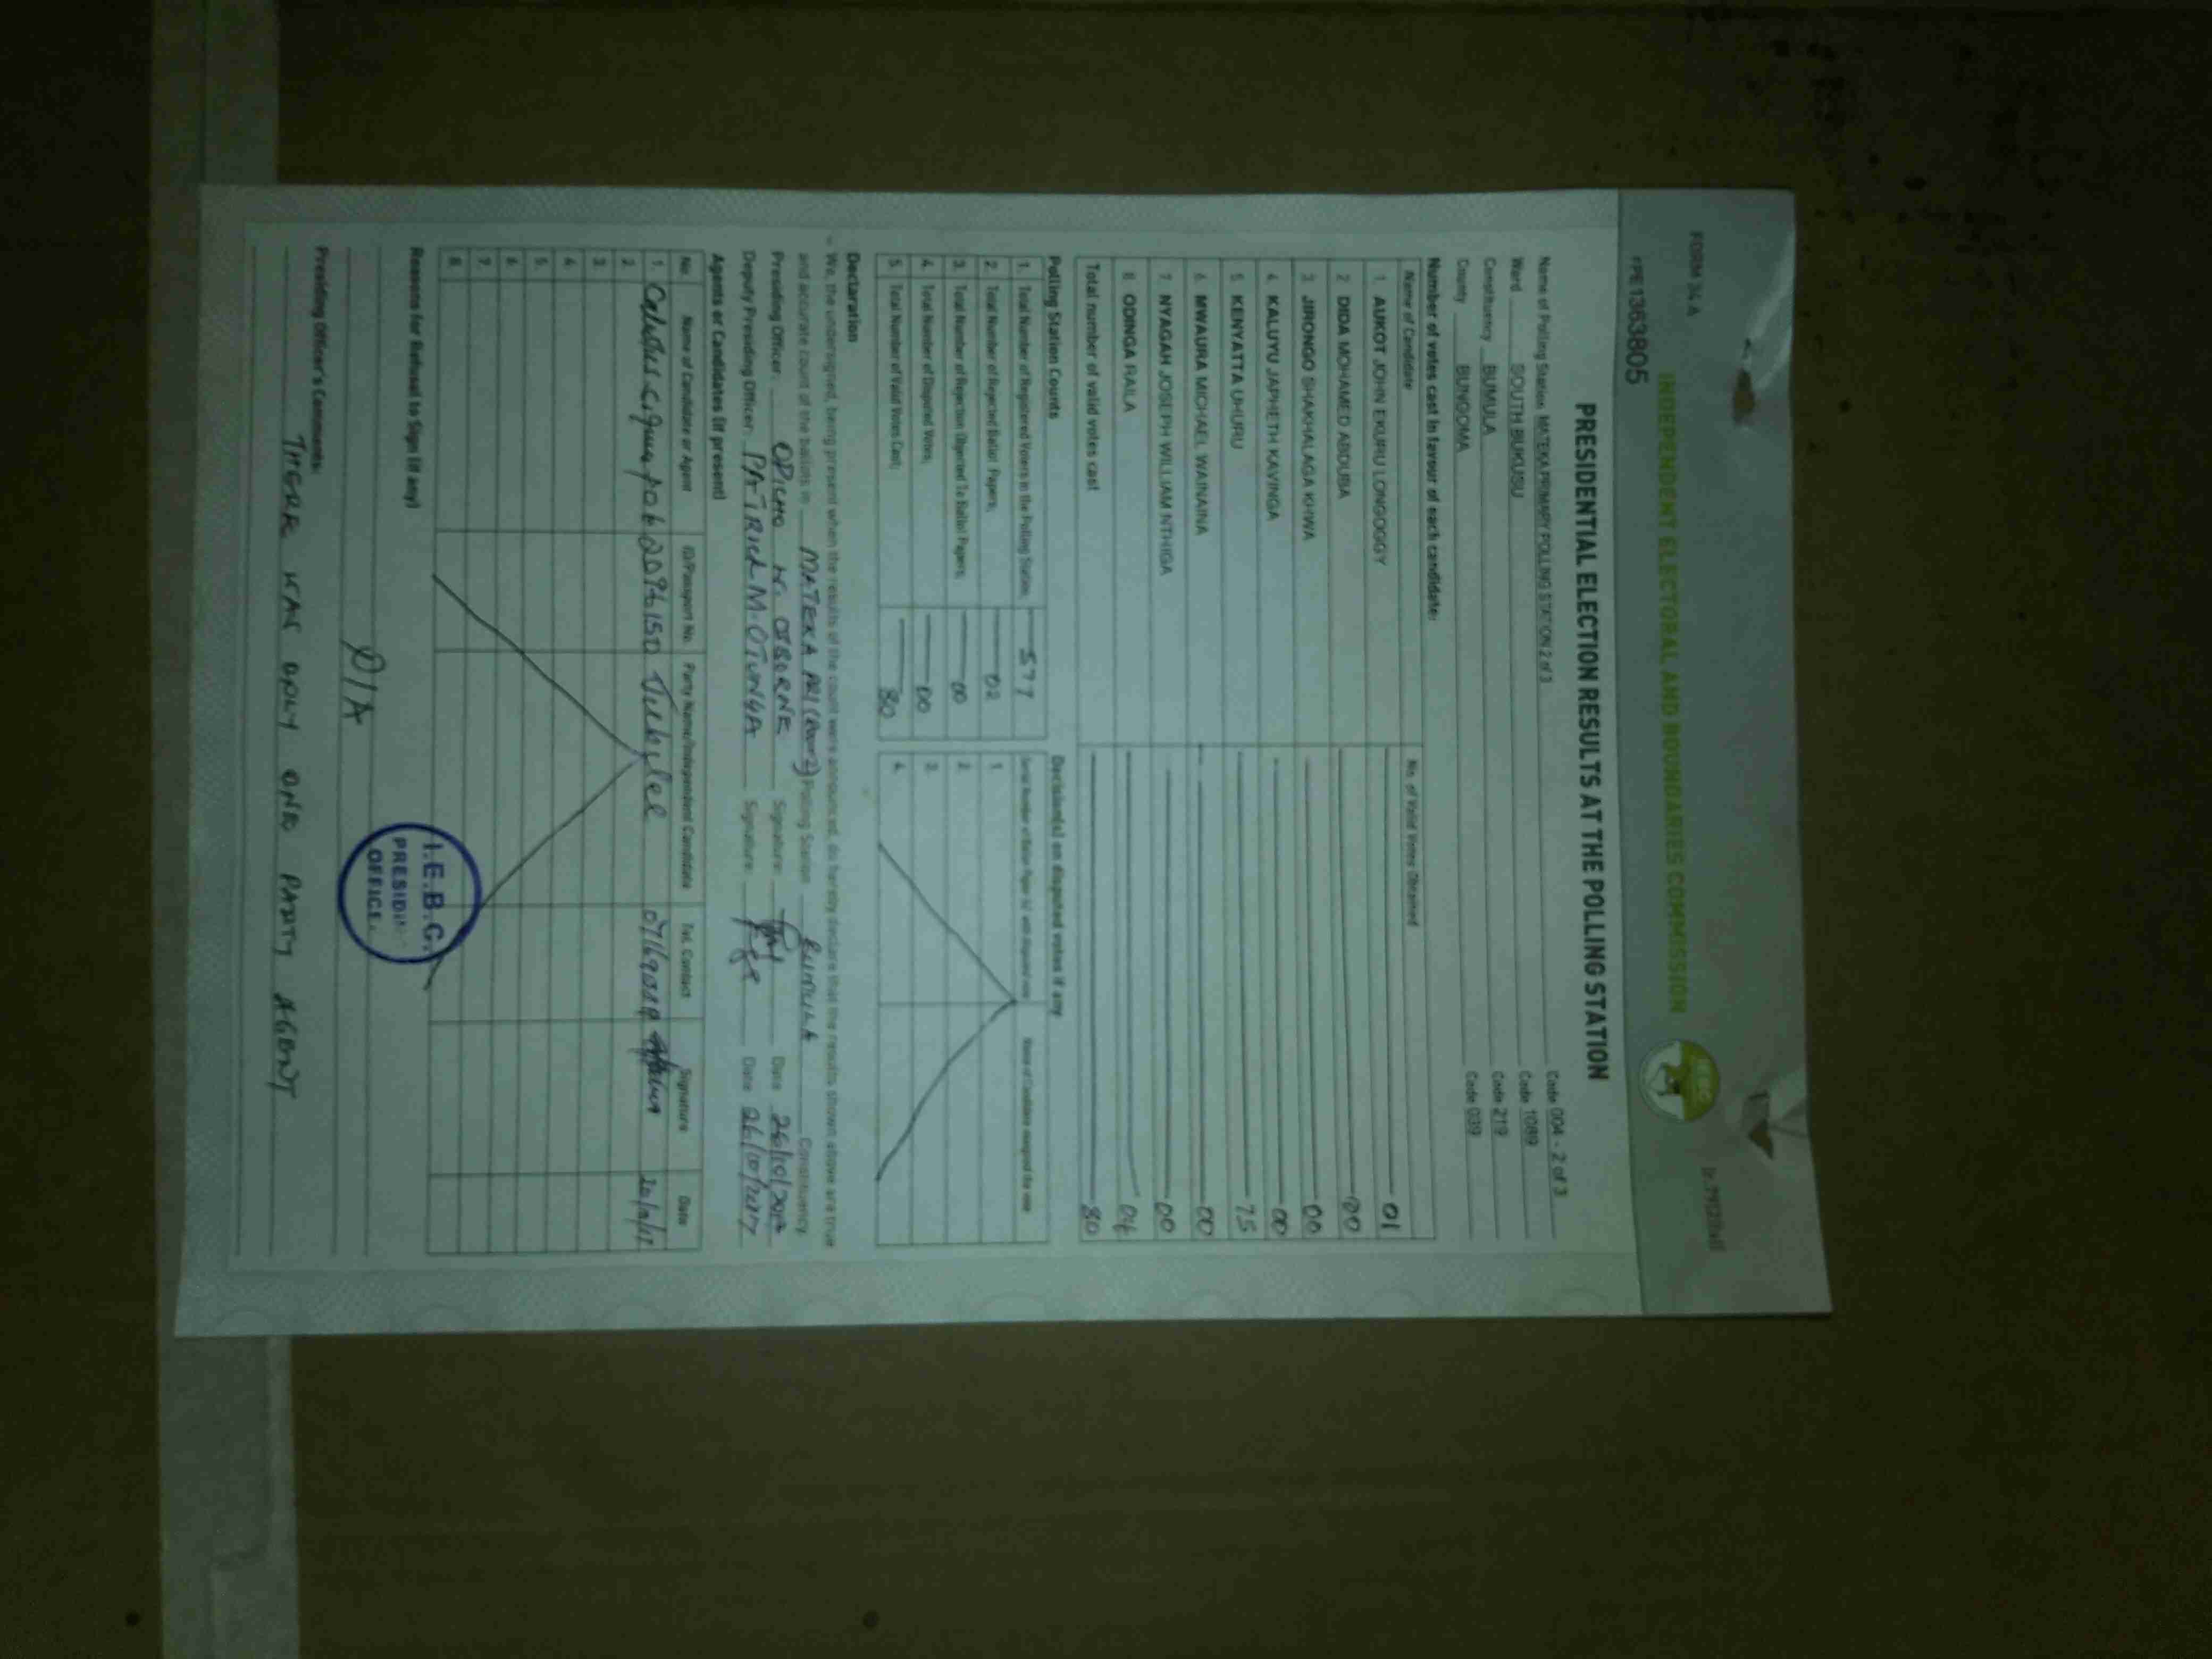 FORM 34 A
INDEPENDENT ELECTORAL AND BOUNDARIES COMMISSION
PE1363805
PRESIDENTIAL ELECTION RESULTS AT THE POLLING STATION
Name of Polling Station MATEKA PRIMARY POLLING STATION 2 of 3 Code 004 - 2 of 3
Ward SOUTH BUKUSU Code 1089
Constituency BUMULA Code 219
County BUNGOMA Code 039
Number of votes cast in favour of each candidate:
Name of Candidate No. of Valid Votes Obtained
1. AUKOT JOHN EKURU LONGOGGY 01
2. DIDA MOHAMED ABDUBA 00
3. JIRONGO SHAKHALAGA KHWA 00
4. KALUYU JAPHETH KAVINGA 00
5. KENYATTA UHURU 75
6. MWAURA MICHAEL WAINAINA 00
7. NYAGAH JOSEPH WILLIAM NTHIGA 00
8. ODINGA RAILA 04
Total number of valid votes cast 80
Polling Station Counts Decision(s) on disputed votes if any
1. Total Number of Registered Voters in the Polling Station; 577
2. Total Number of Rejected Ballot Papers; 02 1.
3. Total Number of Rejection Objected To Ballot Papers; 00 2.
4. Total Number of Disputed Votes; 00 3.
5. Total Number of Valid Votes Cast; 80 4.
Declaration
We, the undersigned, being present when the results of the count were announced, do hereby declare that the results shown above are true
and accurate count of the ballots in MATEKA PRI Polling Station BUMULA Constituency
Presiding Officer: OPICHO W. OSBORNE Signature: Date 26/10/2017
Deputy Presiding Officer: PATRICK M. OTUNGA Signature: Date 26/10/2017
Agents or Candidates (if present)
No. Name of Candidate or Agent ID/Passport No. Party Name/Independent Candidate Tel. Contact Signature Date
1. Jubilee
2.
3.
4.
5.
6.
7.
8.
Reasons for Refusal to Sign (if any)
I.E.B.C.
PRESIDIN
OFFICE
Presiding Officer's Comments:
THERE WAS ONLY ONE PARTY AGENT